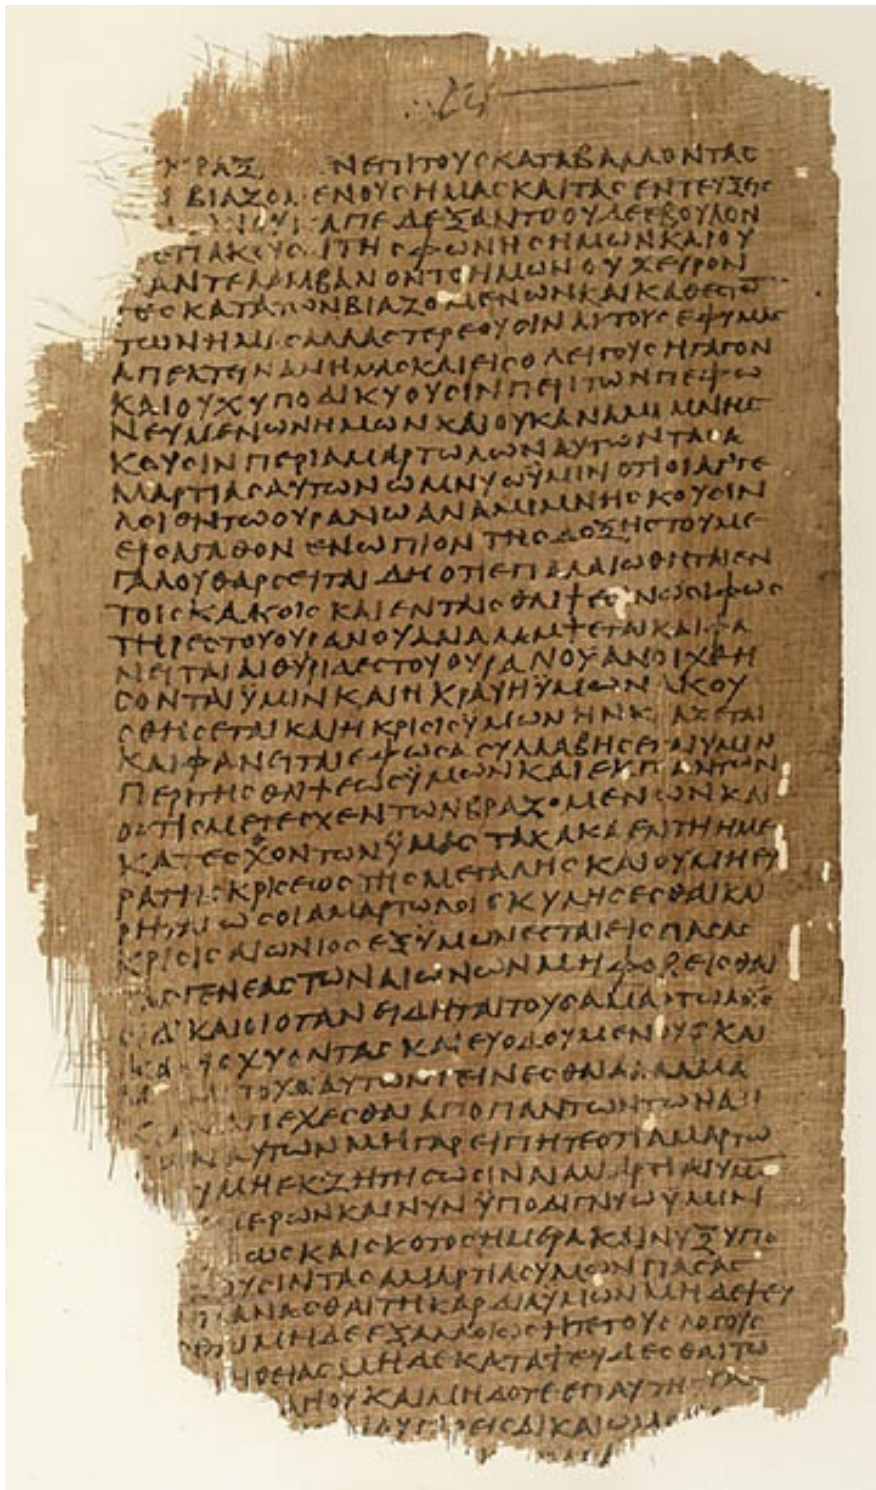 ΡΑΞ ΝΕΠΙΤΟΥϹΚΑΤΑΒΑΛΛΟΝΤΑϹ
ΒΙΑΖΟΜΕΝΟΥϹΗΜΑϹΚΑΙΤΑϹΕΝΤΕΥΞΕΙϹ
ΑΠΕΔΕΞΑΝΤΟΟΥΔΕΕΒΟΥΛΟΝ
ΕΠΑΚΟΥϹΑΙΤΗϹΦΩΝΗϹΗΜΩΝΚΑΙΟΥ
ΑΝΤΕΛΑΜΒΑΝΟΝΤΟΗΜΩΝΟΥΧΕΥΡΟΝ
ΤΕϹΚΑΤΑΤΩΝΒΙΑΖΟΜΕΝΩΝΚΑΙΚΑΘΕϹΤΩ
ΤΩΝΗΜΑϹΑΛΛΑϹΤΕΡΕΟΥϹΙΝΑΥΤΟΥϹΕΦΥΜΑϹ
ΑΠΕΚΤΕΙΝΑΝΗΜΑϹΚΑΙΕΙϹΟΛΕΙΓΟΥϹΗΓΑΓΟΝ
ΚΑΙΟΥΧΥΠΟΔΙΚΥΟΥϹΙΝΠΕΡΙΤΩΝΠΕΦΩ
ΝΕΥΜΕΝΩΝΗΜΩΝΚΑΙΟΥΚΑΝΑΜΙΜΝΗϹ
ΚΟΥϹΙΝΠΕΡΙΑΜΑΡΤΩΛΩΝΑΥΤΩΝΤΑϹΑ
ΜΑΡΤΙΑϹΑΥΤΩΝΟΜΝΥΩΫΜΙΝΟΤΙΟΙΑΓΓΕ
ΛΟΙΕΝΤΩΟΥΡΑΝΩΑΝΑΜΙΜΝΗϹΚΟΥϹΙΝ
ΕΙϹΑΓΑΘΟΝΕΝΩΠΙΟΝΤΗϹΔΟΞΗϹΤΟΥΜΕ
ΓΑΛΟΥΘΑΡϹΕΙΤΑΙΔΗΟΤΙΕΠΑΛΑΙΩΘΗΤΑΙΕΝ
ΤΟΙϹΚΑΚΟΙϹΚΑΙΕΝΤΑΙϹΘΛΙΨΕϹΙΝΩϹΙΦΩϹ
ΤΗΡΕϹΤΟΥΟΥΡΑΝΟΥΑΝΑΛΑΜΨΕΤΑΙΚΑΙΦΑ
ΝΕΙΤΑΙΑΙΘΥΡΙΔΕϹΤΟΥΟΥΡΑΝΟΥΑΝΟΙΧΘΗ
ϹΟΝΤΑΙΫΜΙΝΚΑΙΗΚΡΑΥΗΫΜΩΝΑΚΟΥ
ϹΘΗϹΕΤΑΙΚΑΙΗΚΡΙϹΙϹΫΜΩΝΗΝΚΡΑΖΕΤΑΙ
ΚΑΙΦΑΝΕΙΤΑΙΕΦΟϹΑϹΥΛΛΑΒΗϹΕΤΑΙΥΜΙΝ
ΠΕΡΙΤΗϹΘΛΙΨΕΩϹΫΜΩΝΚΑΙΕΚΠΑΝΤΩΝ
ΟϹΤΙϹΜΕΤΕϹΧΕΝΤΩΝΒΙΑΖΟΜΕΝΩΝΚΑΙ
ΚΑΤΕϹΧΟΝΤΩΝΫΜΑϹΤΑΚΑΚΑΕΝΤΗΗΜΕ
ΡΑΤΗϹΚΡΙϹΕΩϹΤΗϹΜΕΓΑΛΗϹΚΑΙΟΥΜΗΕΥ
ΡΗΤΑΙΩϹΟΙΑΜΑΡΤΩΛΟΙϹΚΥΛΗϹΕϹΘΑΙΚΑΙ
ΚΡΙϹΙϹΑΙΩΝΙΟϹΕΞΫΜΩΝΕϹΤΑΙΕΙϹΠΑϹΑϹ
ΤΑϹΓΕΝΕΑϹΤΩΝΑΙΩΝΩΝΜΗΦΟΒΕΙϹΘΑΙ
ΟΙΔΙΚΑΙΟΙΟΤΑΝΕΙΔΗΤΑΙΤΟΥϹΑΜΑΡΤΩΛΟΥϹ
ΚΑΤΙϹΧΥΟΝΤΑϹΚΑΙΕΥΟΔΟΥΜΕΝΟΥϹΚΑΙ
ΤΟΧΟΙΑΥΤΩΝΓΕΙΝΕϹΘΑΙΑΛΛΑΜΑ
ΑΠΕΧΕϹΘΑΙΑΠΟΠΑΝΤΩΝΤΩΝΑΔΙ
ΑΥΤΩΝΜΗΓΑΡΕΙΠΗΤΕΟΤΙΑΜΑΡΤΩ
ΥΜΗΕΚΖΗΤΗϹΩϹΙΝΑΙΑΜΑΡΤΙΑΙΥΜΩ
ΜΕΡΩΝΚΑΙΝΥΝΫΠΟΔΙΓΝΥΩΫΜΙΝ
ΩϹΚΑΙϹΚΟΤΟϹΗΜΕΡΑΚΑΙΝΥΞΥΠΟ
ΟΥϹΙΝΤΑϹΑΜΑΡΤΙΑϹΥΜΩΝΠΑϹΑϹ
ΠΛΑΝΑϹΘΑΙΤΗΚΑΡΔΙΑΥΜΩΝΜΗΔΕΨΕΥ
ΜΗΔΕΕΞΑΛΛΟΙΩϹΗΤΕΤΟΥϹΛΟΓΟΥϹ
ΗΘΕΙΑϹΜΗΔΕΚΑΤΑΨΕΥΔΕϹΘΑΙΤΩ
ΓΙΟΥΚΑΙΜΗΔΟΤΕΕΠΑ
ΔΙΚΑΙΩ